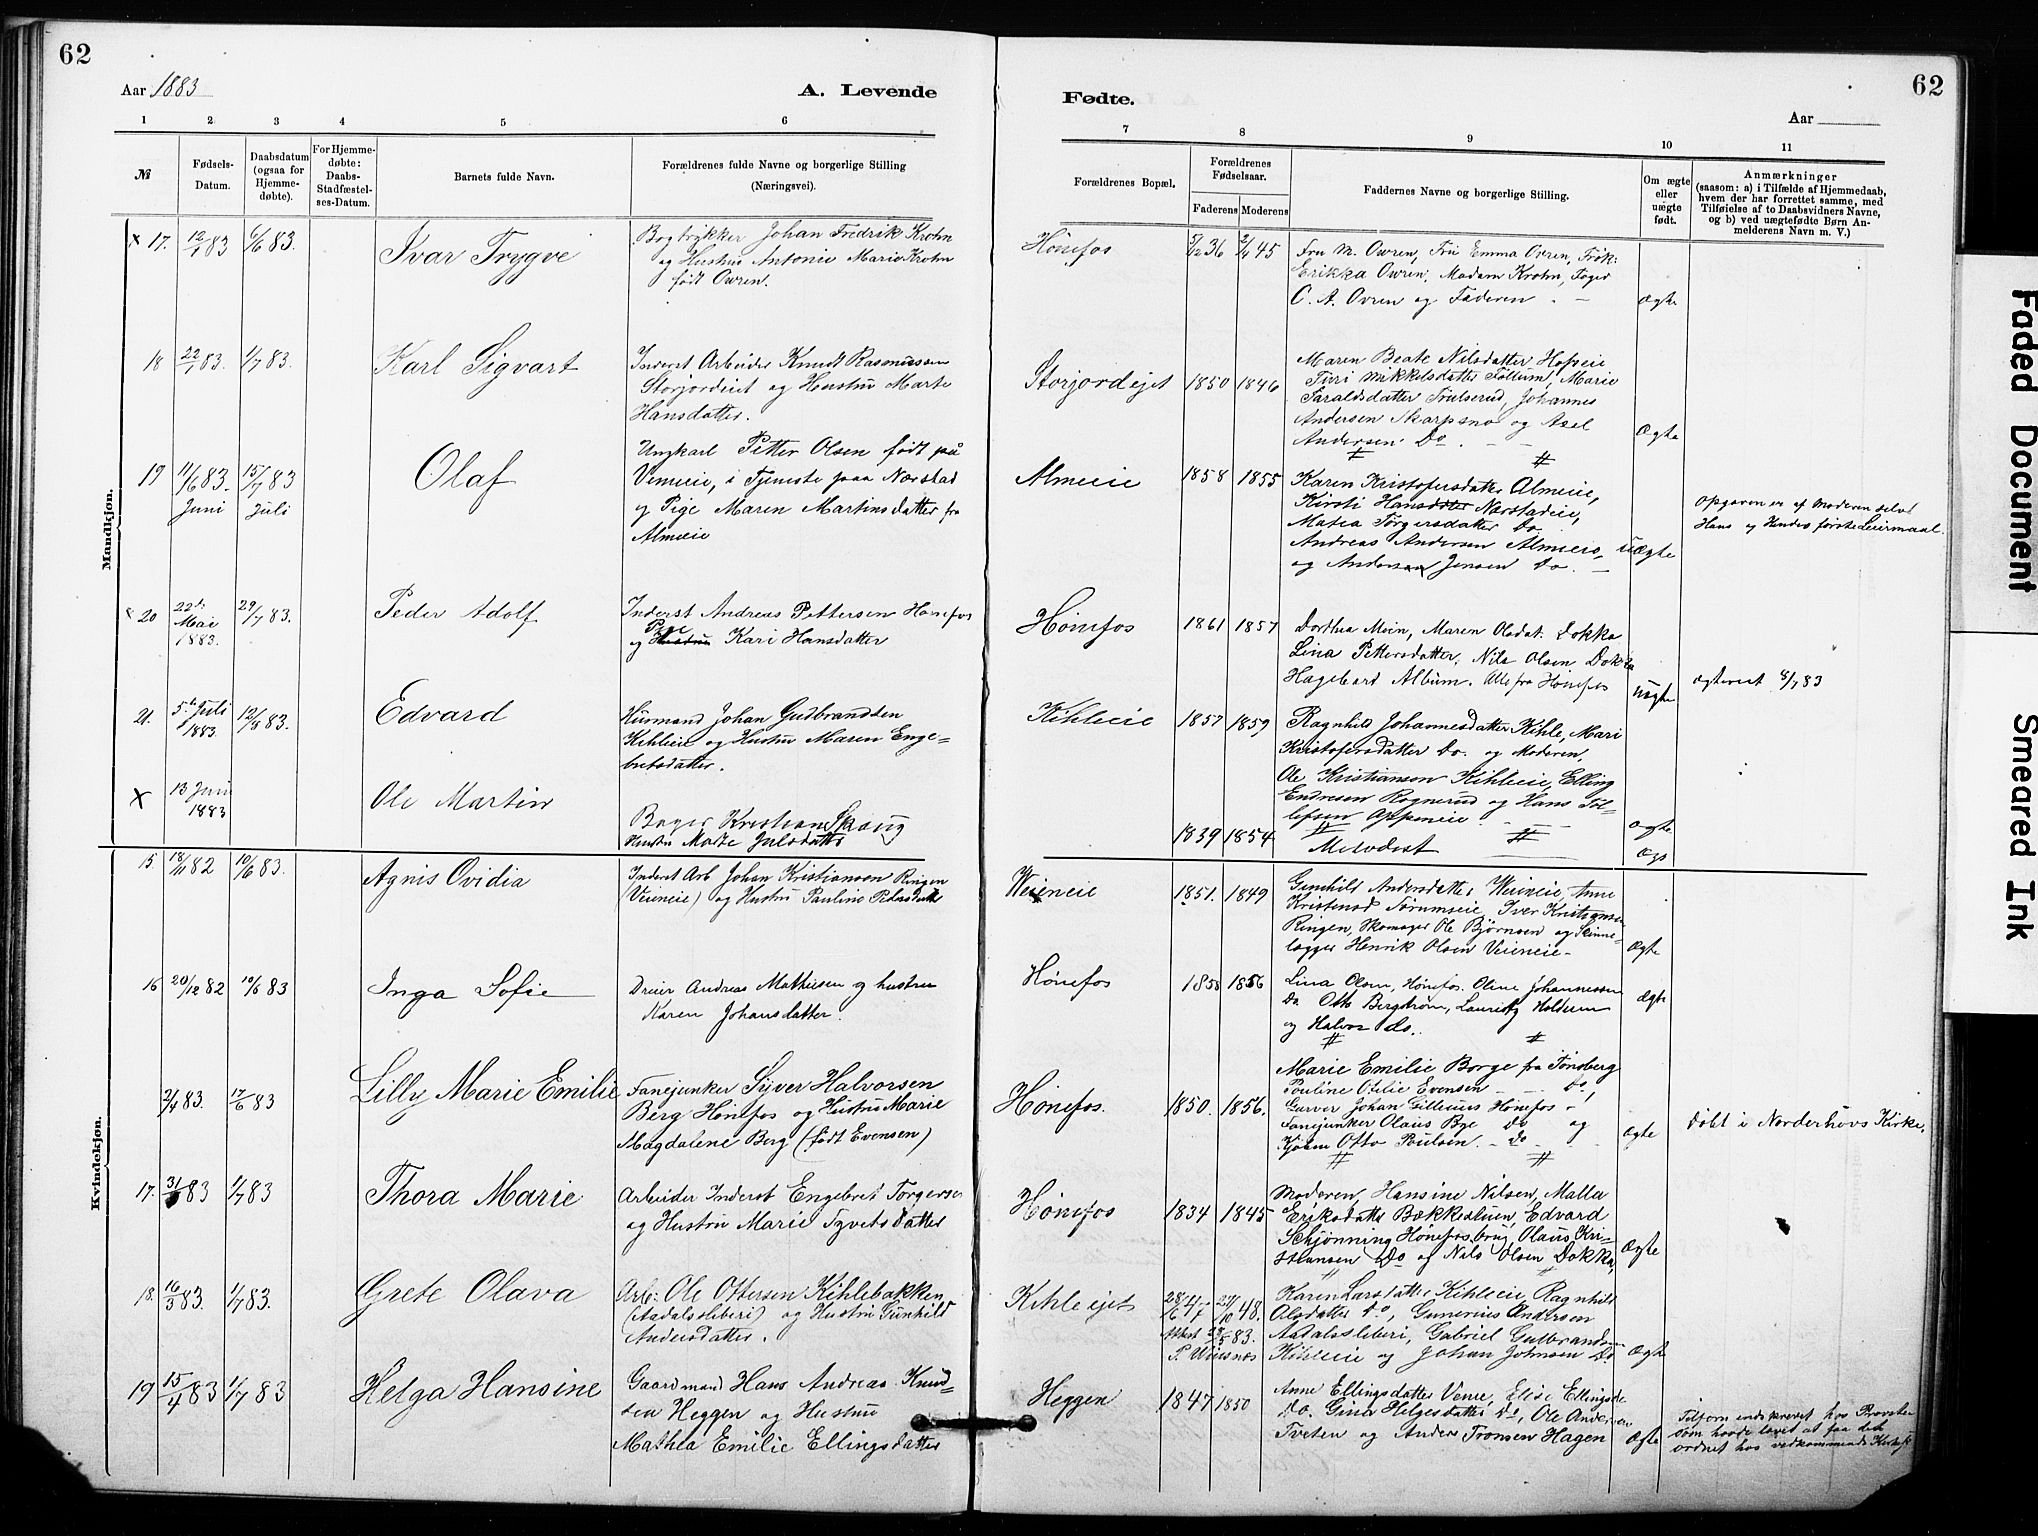 62
Aar 1883
A. Levende
1 2 3 4 5 6
№
Fødsels-Datum.
Daabsdatum (ogsaa for Hjemme-døbte).
For Hjemme-døbte: Daabs-Stadfæstel-ses-Datum.
Barnets fulde Navn.
Forældrenes fulde Navne og borgerlige Stilling
(Næringsvei).
Mandkjøn.
x 17. 12/1 83 6/6 83.
Ivar Trygve
Bogtrykker Johan Fredrik Krohn
og Hustru Antonie Marie Krohn
født Owren.
18 22/1 83. 1/7 83.
Karl Sigvart
Inderst Arbeider Knudt Rasmussen
Storjordeiet og Hustru Marte
Hansdatter.
19 11/6 83. 15/7 83
Juni Juli
Olaf
Ungkarl Petter Olsen født på
Vemeie, i Tjeneste paa Nærstad
og Pige Maren Martinsdatter fra
Almeie
x 20 22de Mai 1883. 29/7 83.
Peder Adolf
Inderst Andreas Pettersen Hønefos
Pige
og Hustru Kari Hansdatter
21. 5te Juli 1883. 12/8 83.
Edvard
Huusmand Johan Gudbrandsen
Kihleie og Hustru Maren Enge-
bretsdatter.
x 13 Juni 1883
Ole Martin
Bager Kristian Skaug
Hustru Marte Julsdatter
Kvindekjøn.
15 18/11 82 10/6 83.
Agnis Ovidia
Inderst Arb Johan Kristiansen Ringen
(Veieneie) og Hustru Pauline Pedersdatter
16 20/12 82 10/6 83
Inga Sofie
Dreier Andreas Mathiesen og hustru
Karen Johansdatter.
2/4 83. 17/6 83
Lilly Marie Emilie
Fanejunker Syver Halvorsen
Berg Hønefos og Hustru Marie
Magdalene Berg (født Evensen)
17. 31/ 83 1/7 83
Thora Marie
Arbeider Inderst Engebret Torgersen
og Hustru Marie Syvertsdatter
18. 16/3 83. 1/7 83.
Grete Olava
Arb: Ole Ottersen Kihlebakken
(Aadalssliberi) og Hustru Gunhild
Andersdatter.
19 15/4 83 1/7 83
Helga Hansine
Gaardmand Hans Andreas Knud-
sen Heggen og Hustru
Mathea Emilie Ellingsdatter
62
Fødte.
Aar
7 8 9 10 11
Forældrenes Bopæl.
Forældrenes Fødselsaar.
Faderens Moderens
Faddernes Navne og borgerlige Stilling.
Om ægte eller uægte født.
Anmærkninger
(saasom: a) i Tilfælde af Hjemmedaab,
hvem der har forrettet samme, med
Tilføielse af to Daabsvidners Navne,
og b) ved uægtefødte Børn An-
melderens Navn m. V.)
Hønefos 5/12 36 2/4 45
Fru M. Owren, Fru Emma Owren, Frøk:
Erikka Owren, Madam Krohn, Foged
C. A. Owren og Faderen
Ægte
Storjordejet 1850 1846
Maren Beate Nilsdatter Hofseie
Turi Mikkelsdatter Follum, Marie
Haraldsdatter Trulserud, Johannes
Andersen Skarpsno og Axel
Andersen Do.
Ægte
Almeie 1858 1855
Karen Kristofersdatter Almeie,
Kirsti Hansdatter Nærstadeie,
Matea Torgersdatter Do
Andreas Andersen Almeie
og Anders Jensen Do.
uÆgte
Opgaven er af Moderen selv
Hans og Hendes første Leiermaal.
Hønefos 1861 1857
Dorthea Moin, Maren Olsdat. Dokka
Lina Pettersdatter, Nils Olsen Dokka
Hagebart Album. Alle fra Hønefos
uægte
ægteviet 8/7 83
Kihleie 1857 1859
Ragnhild Johannesdatter Kihle, Mari
Kristofersdatter Do. og Moderen.
Ole Kristianson Kihleie, Elling
Endresen Rognerud og Hans Tol-
lefsen Oppeneie
Ægte
1839 1854 Metodist Ægt
Weieneie 1851. 1849
Gunhild Andersdatter Weieneie, Anne
Kristensd Tørumseie, Iver Kristiansen
Ringen, Skomager Ole Bjørnsen og Skinne-
lægger Henrik Olsen Veieneie
Ægte
Hønefos 1858 1856
Lina Olsen, Hønefos. Oline Johannessen
Do. Otto Bergstrøm, Lauritz Holdum
og Halvor do.
Ægte
Hønefos. 1850. 1856.
Marie Emilie Borge fra Tønsberg
Pauline Otilie Evensen Do,
Garver Johan Gillerius Hønefos
Fanejunker Olaus Bye Do og
Kjøbm Otto Poulsen Do
Ægte
Døbt i Norderhovs Kirke.
Hønefos 1834 1845
Moderen, Hansine Nilsen, Malla
Eriksdatter Bækkeduen, Edvard
Schjønning Hønefosbrug, Olaus Kri-
stiansen Do og Nils Olsen Dokka,
Ægte
Kihleejet 28/6 47 27/10 48.
Attest 28/5 83.
Karen Larsdatter Kihleeie, Ragnhild
Olsdatter Do, Gunerius Andersen
Aadalssliberi, Gabriel Gulbrandsen
Kihleeie og Johan Johnsen Do
Ægte
Heggen 1847 1850
Anne Ellingsdatter Veme, Elise Ellingsda
Do. Gina Helgesdatter Do, Ole Andersen
Tveten og Anders Tronsen Hagen
Ægte
Tilforn indskrevet hos Provsten
som havde lovet at faa det
ordnet hos vedkommende Kirkes
Faded Document
Smeared Ink